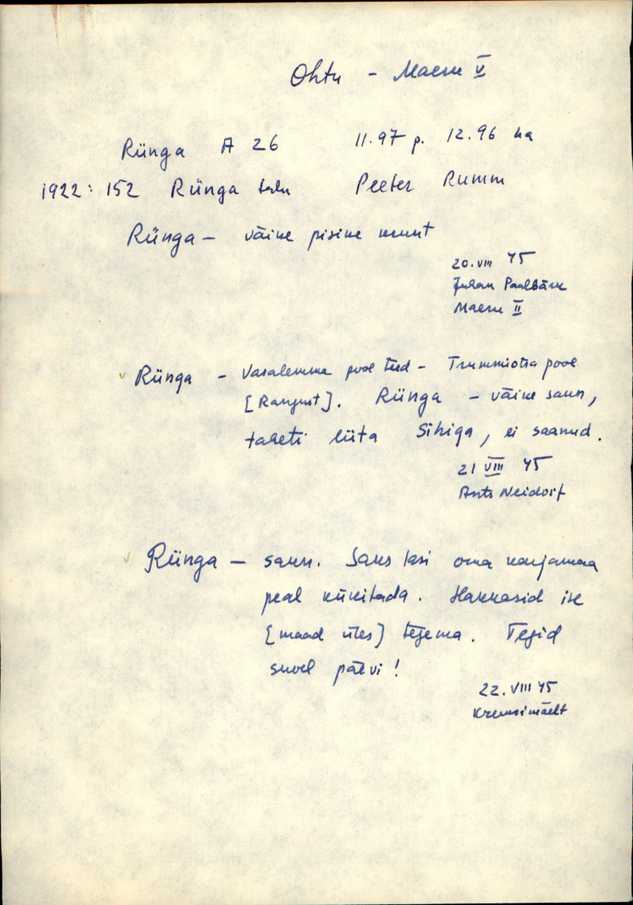 Ohtu - Maeru V
Rünga A 26 11.97 p. 12.96 ha
1922: 152 Rünga talu Peeter Rumm
Rünga - väike pisike
20.VIII 45
Juhan
Maeru II
Rünga - Vasalemma pool teed - pool
Rünga - väike saun,
taheti liita Sihiga, ei saanud.
21 VIII 45
Ants Neidorf
Rünga - saun. Saks lasi oma karjamaa
peal künitada. Hakkasid ise
[maad üles] tegema. Tegid
suvel päevi!
22. VIII 45